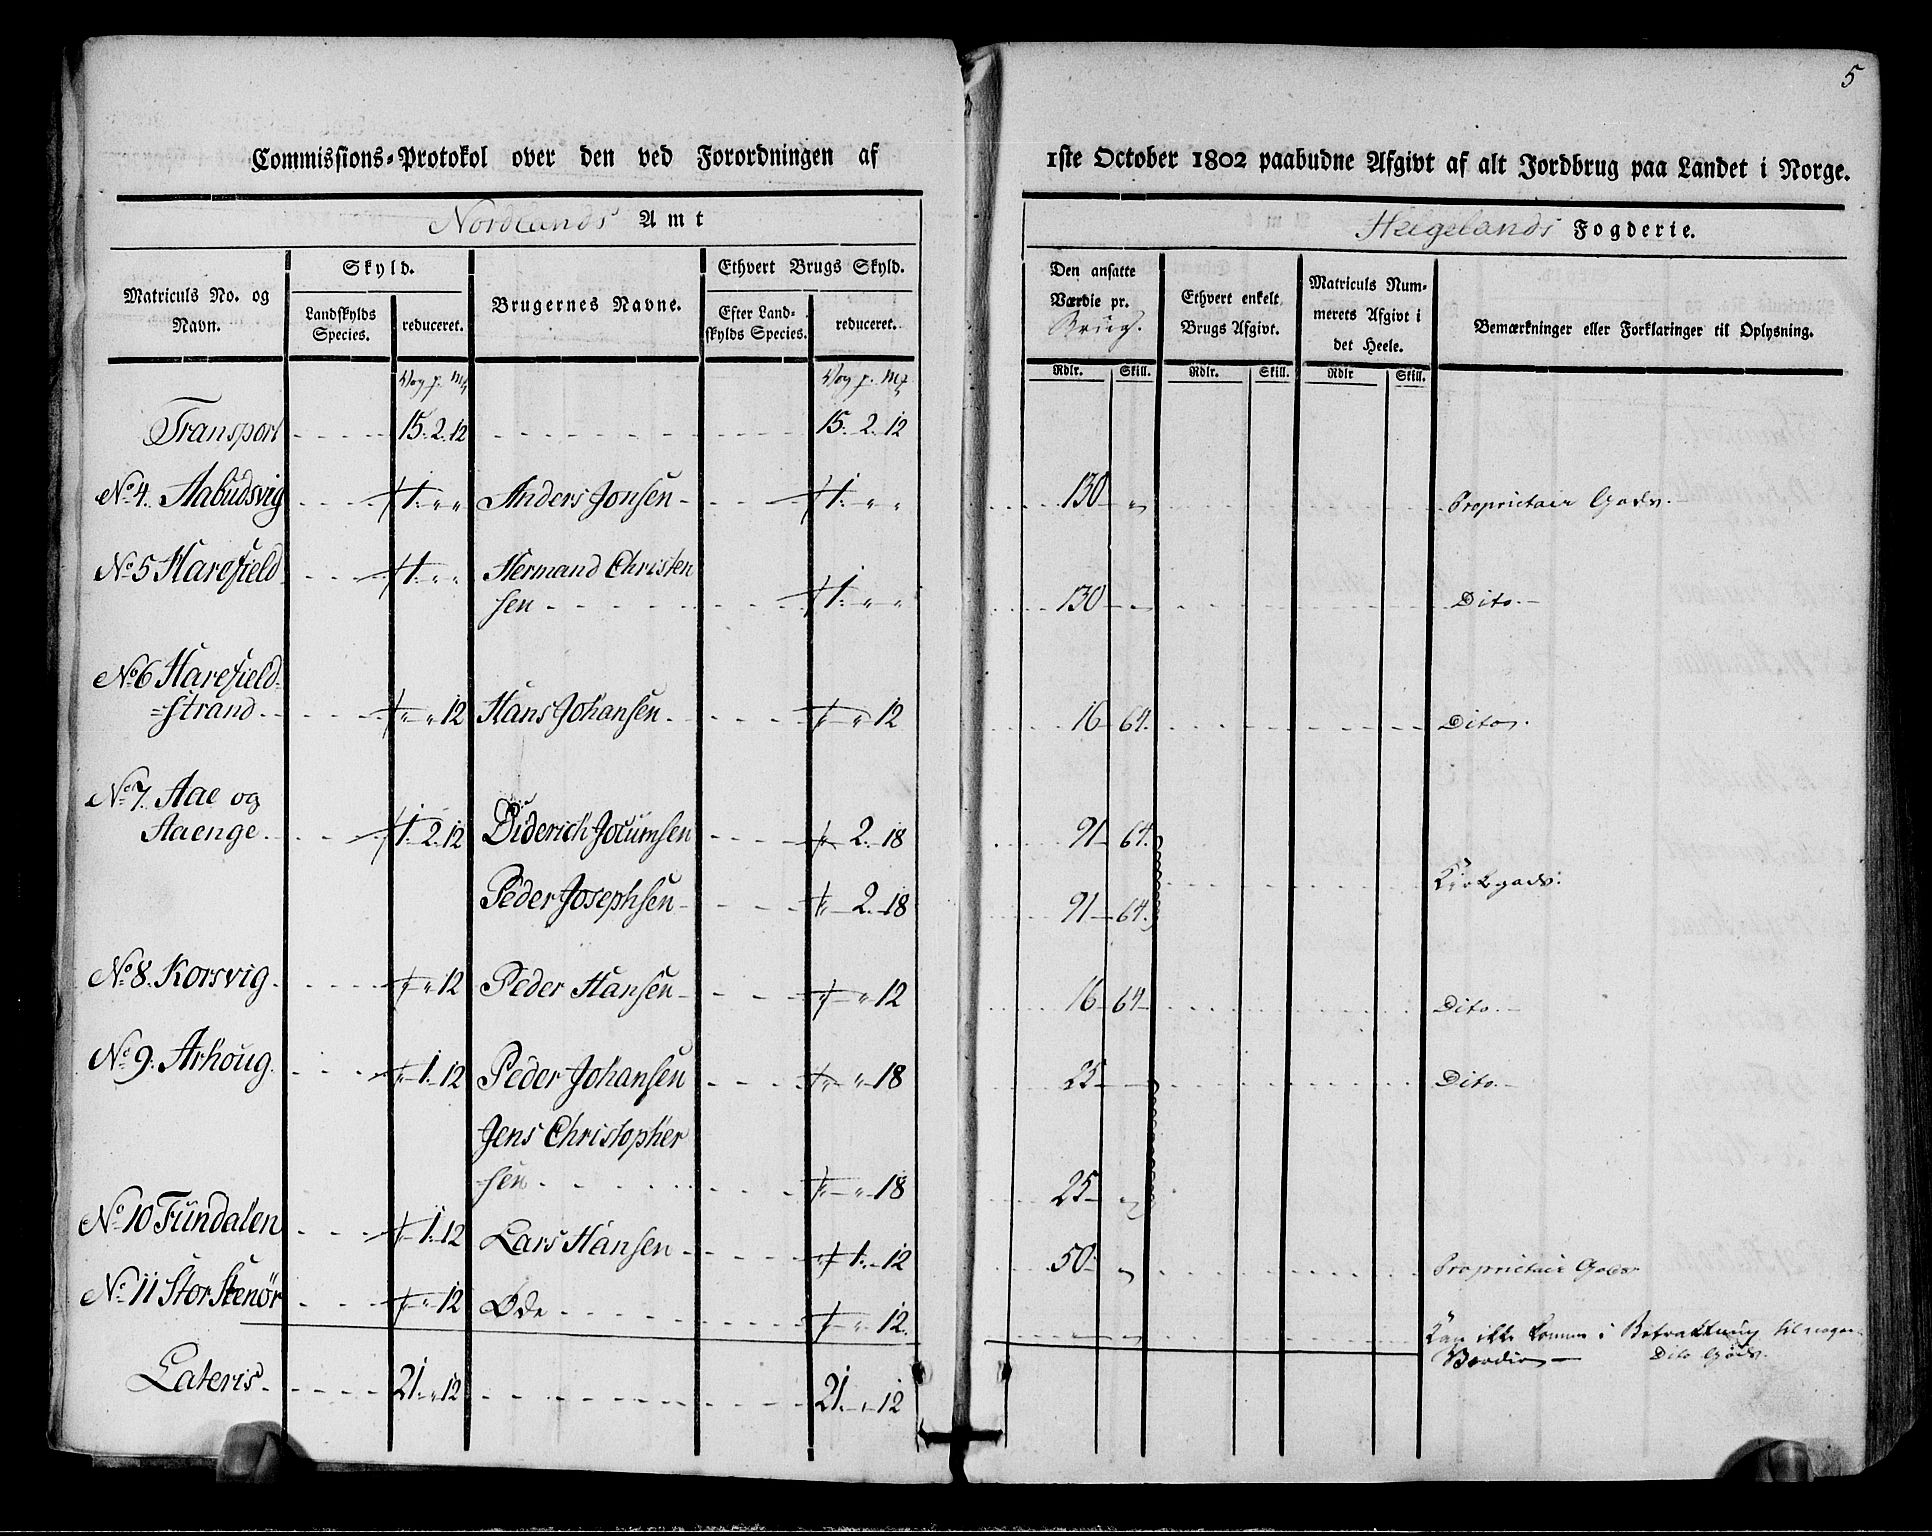 5
Commissions-Protokol over den ved Forordningen af 1ste October 1802 paabudne Afgivt af alt Jordbrug paa Landet i Norge.
Nordlands Amt Helgelands Fogderie.
Matriculs No. og Navn.
Skyld.
Landskylds Species.
reduceret.
Brugernes Navne.
Ethvert Brugs Skyld.
Efter Landskylds Species.
reduceret.
Den ansatte Værdie pr. Brug.
Ethvert enkelt Brugs Afgivt.
Matriculs Nummerets Afgivt i det Heele.
Bemærkninger eller Forklaringer til Oplysning.
Rdlr. Skill. Rdlr. Skill. Rdlr Skill.
Vog p. mk Vog p. mk
Transport 15. 2. 12 15. 2. 12
No 4. Aabudsvig 1. " " Anders Jonsen 1. " " 130 " Proprietair Gods.
No 5 Harefield 1. " " Hermand Christen
sen 1. " " 130 Dito.
No 6 Harefield=
=strand " " 12 Hans Johansen " " 12 16 64. Dito.
No 7. Aae og
Aaenge 1. 2. 12 Diderich Jocumsen " 2. 18 91 64.
Peder Josephsen " 2. 18 91 64. Kirkegods.
No 8. Korsvig " " 12 Peder Hansen " " 12 16 64 Dito.
No 9. Arhoug " 1. 12 Peder Johansen " " 18 25 Dito.
Jens Christopher
sen " " 18 25 "
No 10 Fundalen " 1. 12 Lars Hansen " 1. 12 50 " Proprietair Gods
No 11 Stor Stenör " " 12 Øde " " 12. Kan ikke komme i Betraktning til nogen
Værdie Dito Gods.
Lateris 21. " 12 21. " 12